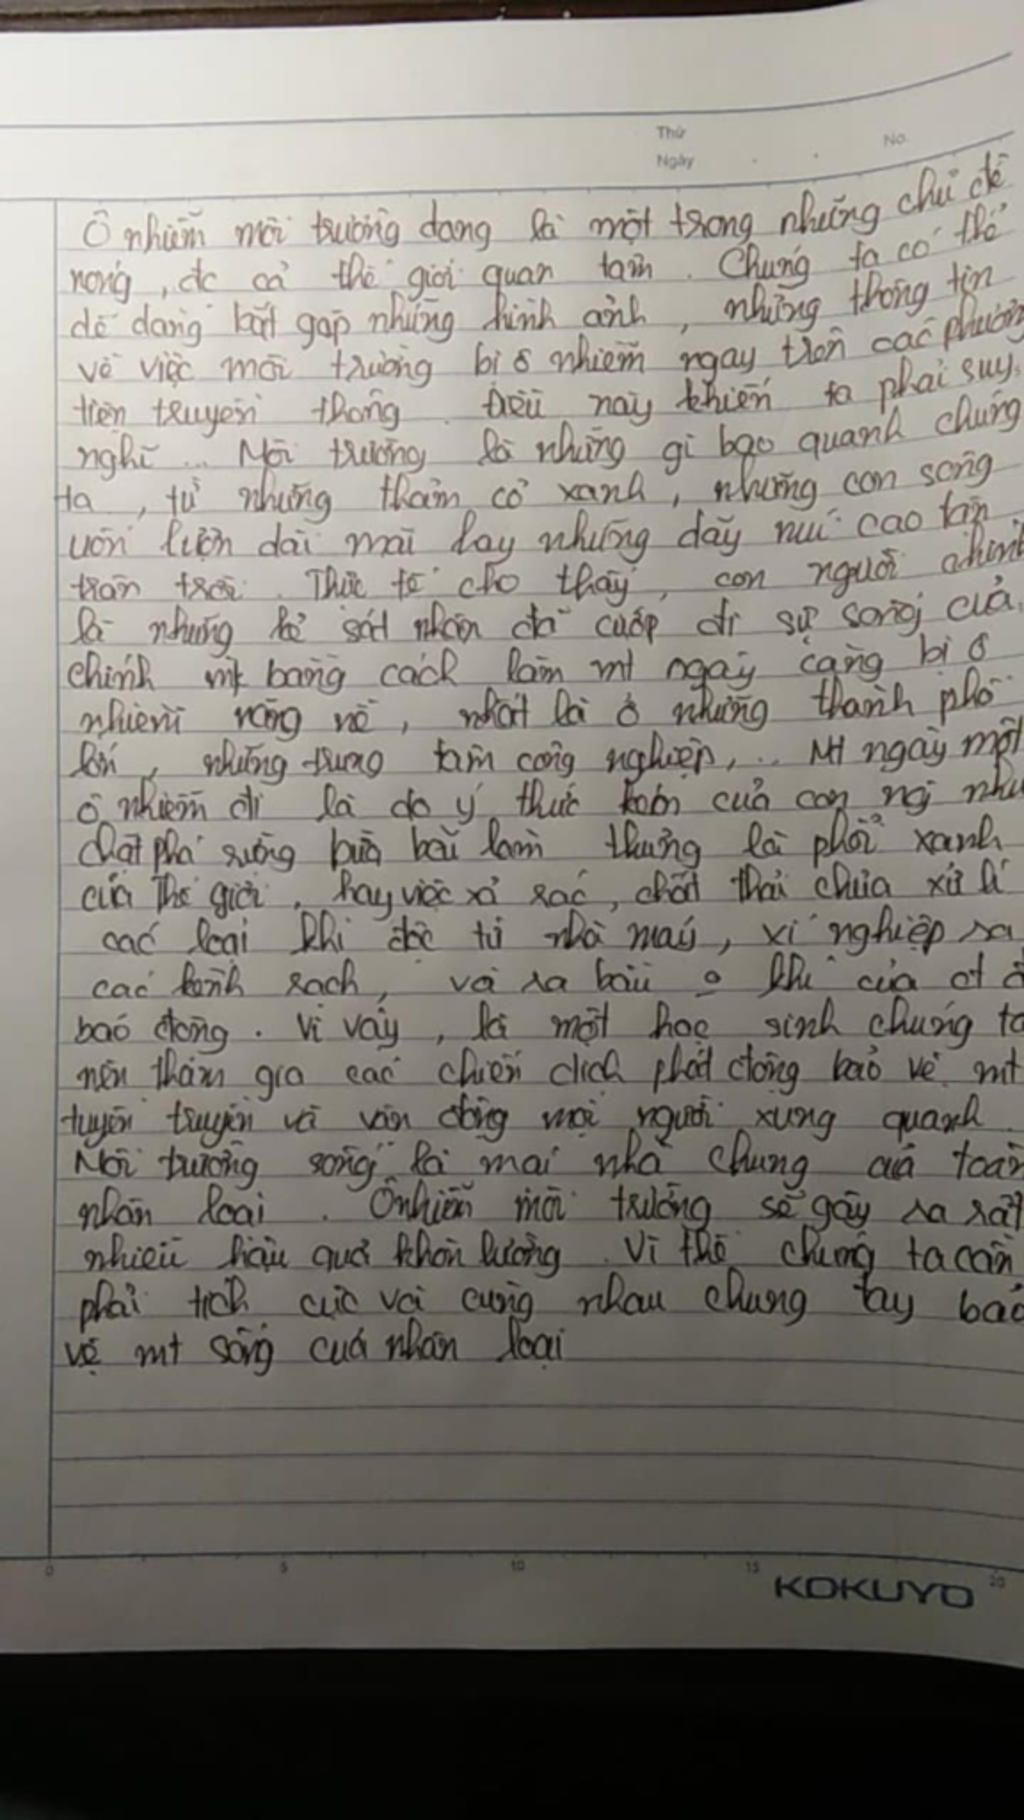 Thứ
No.
Ngày
Ô nhiễm môi trường đang là một trong những chủ đề
nóng, đc cả thế giới quan tâm. Chúng ta có thể
dễ dàng bắt gặp những hình ảnh, những thông tin
về việc môi trường bị ô nhiễm ngay trên các phương
tiện truyền thông. Điều này khiến ta phải suy
nghĩ... Môi trường là những gì bao quanh chúng
ta, từ những thảm cỏ xanh, những con sông
uốn lượn dài mãi hay những dãy núi cao tận
trân trời. Thực tế cho thấy, con người chính
là những kẻ sát nhân đã cướp đi sự sống của
chính mk bằng cách làm mt ngày càng bị ô
nhiễm nặng nề, nhất là ở những thành phố
lớn, những trung tâm công nghiệp,... Mt ngày một
ô nhiễm đi là do ý thức kém của con ng như
chặt phá rừng bừa bãi làm thủng lá phổi xanh
của Thế giới, hay việc xả rác, chất thải chưa xử lí
các loại khí độc từ nhà máy, xí nghiệp ra
các kênh rạch, và ra bầu o khí của ct ở
báo động. Vì vậy, là một học sinh chúng ta
nên tham gia các chiến dịch phát động bảo vệ mt
tuyên truyền và vận động mọi người xung quanh.
Môi trường sống là mái nhà chung của toàn
nhân loại. Ô nhiễm môi trường sẽ gây ra rất
nhiều hậu quả khôn lường. Vì thế chúng ta cần
phải tích cực và cùng nhau chung tay bảo
vệ mt sống của nhân loại
0 5 10 15 20
KOKUYO